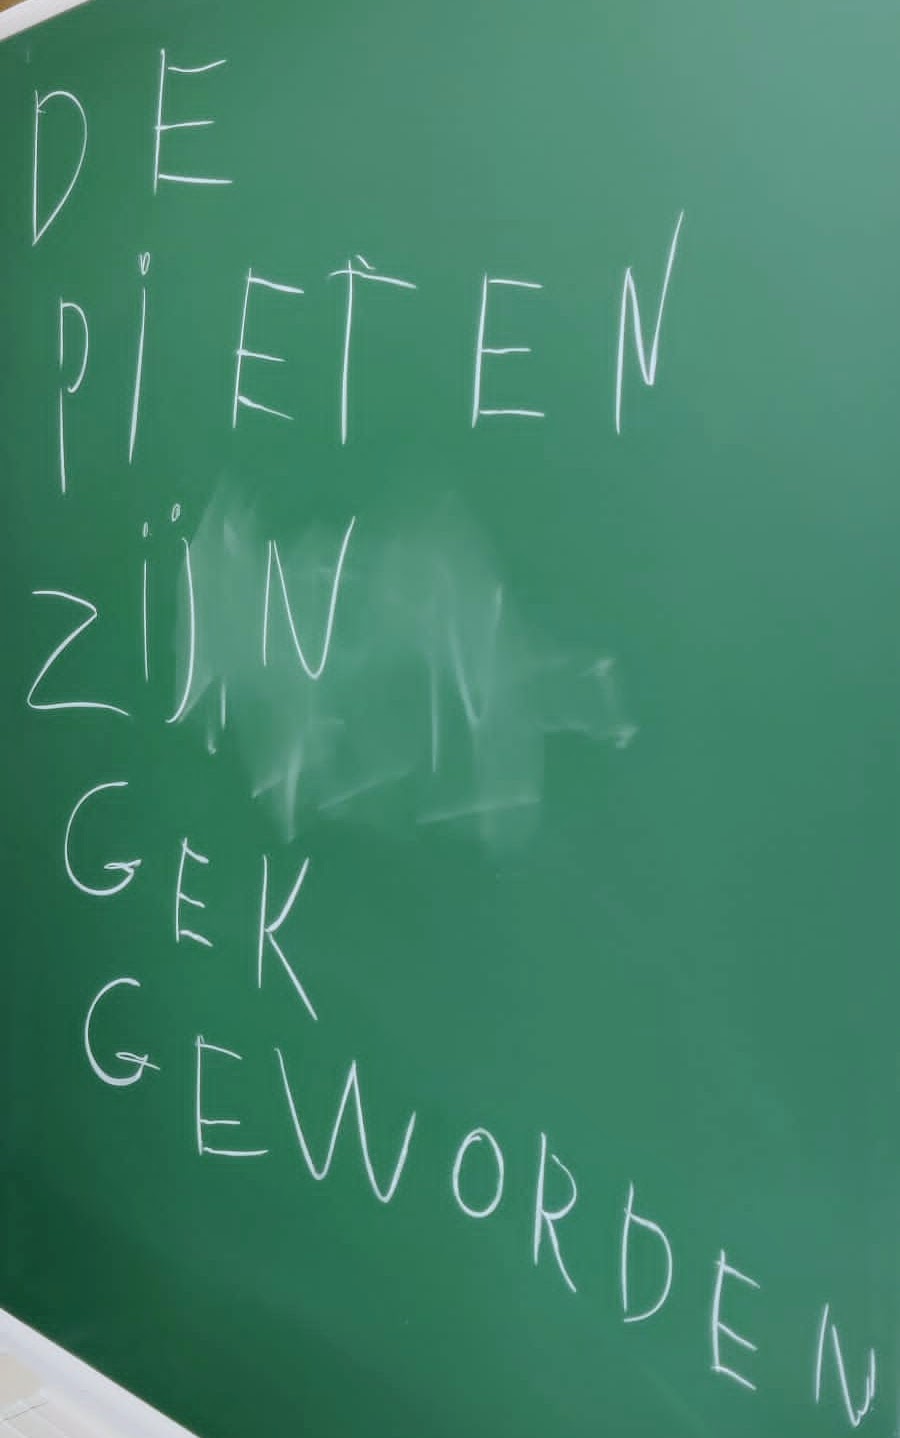 DE
PiETEN
ZijN
GEK
GEWORDEN